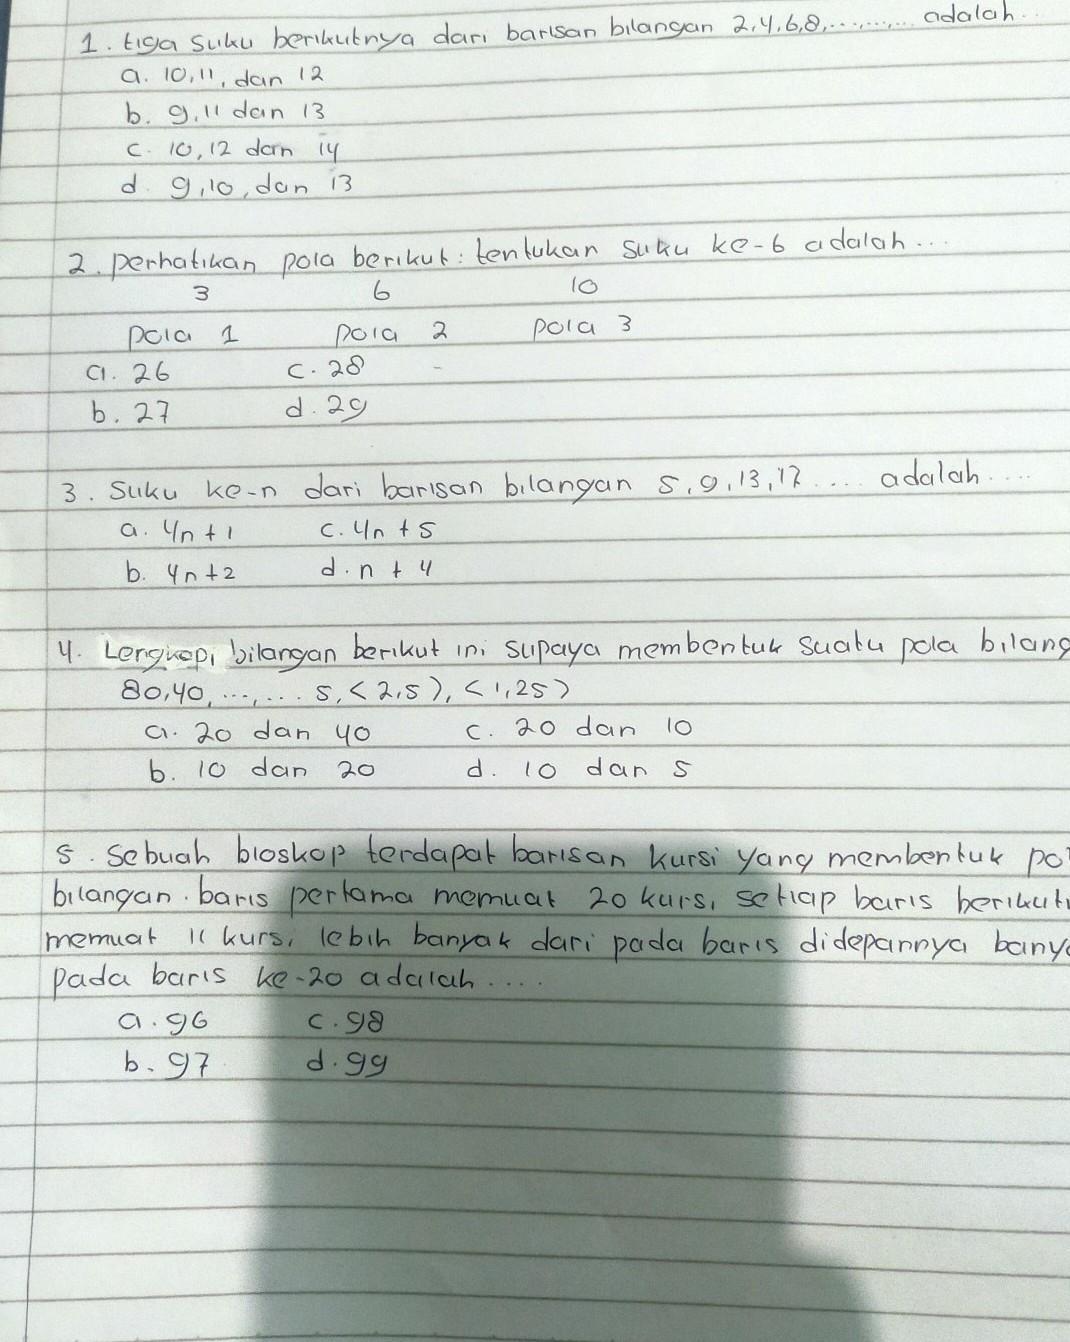 1. tiga suku berikutnya dari barisan bilangan 2,4,6,8,........., adalah...
a. 10,11, dan 12
b. 9,11 dan 13
c. 10,12 dan 14
d. 9,10, dan 13
2. perhatikan pola berikut : tentukan suku ke-6 adalah...
3 6 10
pola 1 pola 2 pola 3
a. 26 c. 28
b. 27 d. 29
3. Suku ke-n dari barisan bilangan 5,9,13,17.... adalah....
a. 4n + 1 c. 4n + 5
b. 4n +2 d. n + 4
4. Lengkapi bilangan berikut ini supaya membentuk suatu pola bilang
80,40, ...,... 5, <2,5>, <1,25>
a. 20 dan 40 c. 20 dan 10
b. 10 dan 20 d. 10 dan 5
5. Sebuah bioskop terdapat barisan kursi yang membentuk po
bilangan. baris pertama memuat 20 kursi setiap baris berikut
memuat 11 kursi lebih banyak dari pada baris didepannya bany
pada baris ke-20 adalah....
a. 96 c. 98
b. 97 d. 99